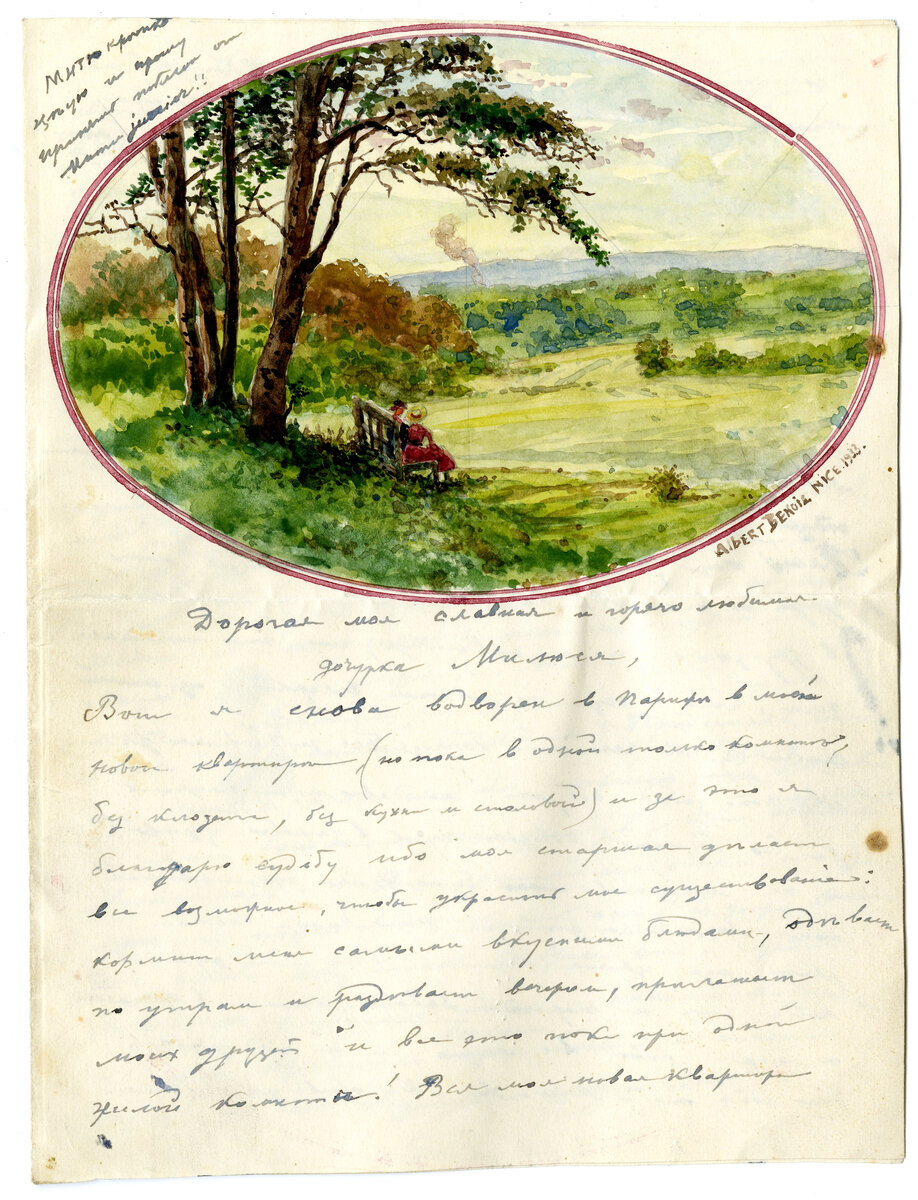 Митю крепко
цѣлую и прошу
принять поцелуи от
Мити junior!!
Albert Benois Nice. 1933.
Дорогая моя славная и горячо любимая
дочурка Милюся,
Вот я снова водворен в Парижѣ в моей
новой квартирѣ (но пока в одной только комнатѣ,
без клозета, без кухни и столовой) и за это я
благодарю судьбу ибо моя старшая дѣлает
все возможное, чтобы украсить мое существованіе:
кормит меня самыми вкусными блюдами, одѣвает
по утрам и раздѣвает вечером, приглашает
моих друзей и все это пока при одной
жилой комнатѣ! Вся моя новая квартира